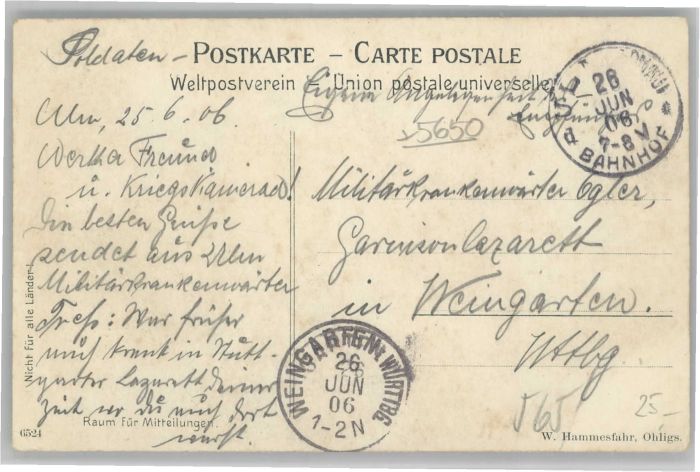 Soldaten – POSTKARTE – CARTE POSTALE
Weltpostverein Union postale universelle
Eigene Angelegenheit des
Empfängers
5650
ULM
26
JUN
06
7-8 V
BAHNHOF
Ulm, 25.6.06.
Werther Freund
u. Kriegskamerad!
Die besten Grüße
sendet aus Ulm
Militärkrankenwärter
War früher
auch krank in Stutt-
garter Lazarett
Zeit wo du auch dort
warst.
Militärkrankenwärter Ogler,
Garnisonlazarett
in Weingarten.
Wttbg.
WEINGARTEN WÜRTTBG.
26
JUN
06
1-2 N
Nicht für alle Länder
Raum für Mitteilungen.
6524
565
25,–
W. Hammesfahr, Ohligs.